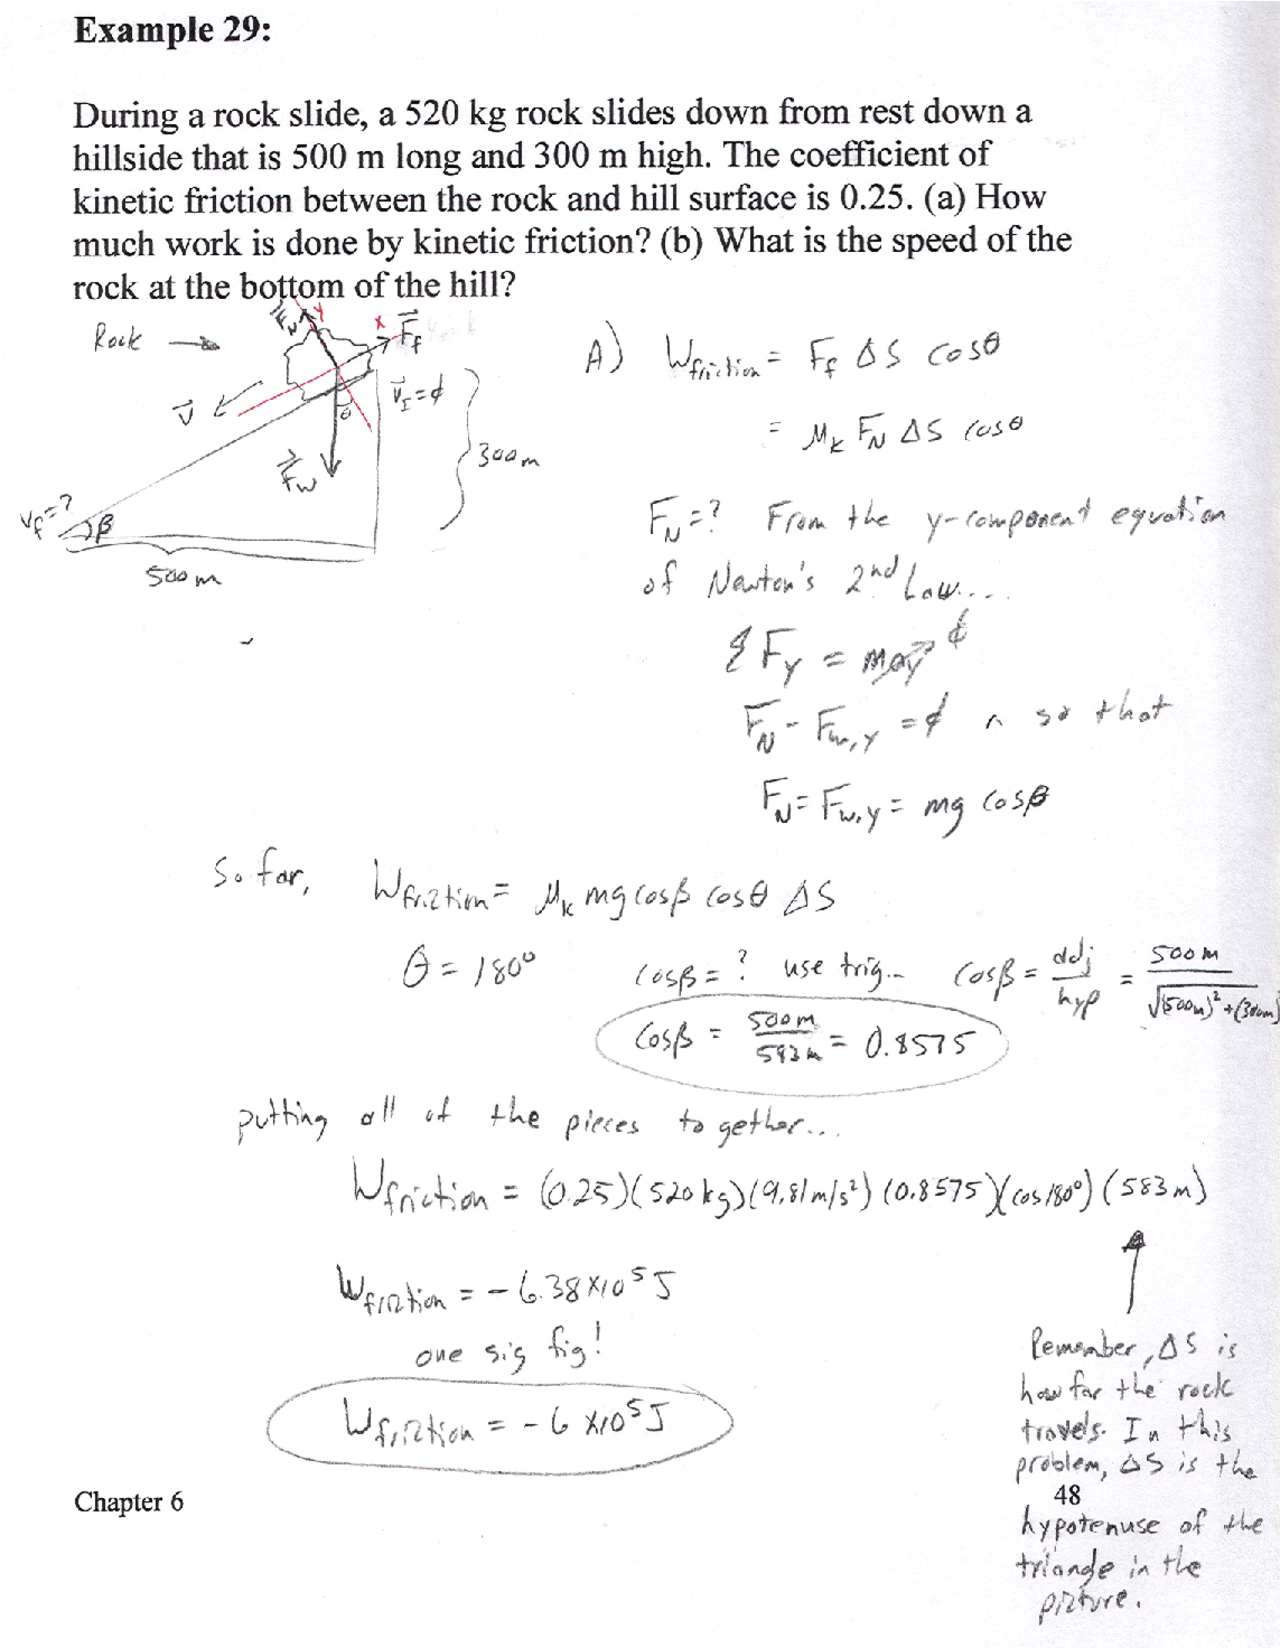 Example 29:
During a rock slide, a 520 kg rock slides down from rest down a
hillside that is 500 m long and 300 m high. The coefficient of
kinetic friction between the rock and hill surface is 0.25. (a) How
much work is done by kinetic friction? (b) What is the speed of the
rock at the bottom of the hill?
Rock →
F⃗N
y
x
F⃗f
v⃗
v⃗I = ∅
θ
300m
F⃗w
vf = ?
β
500m
A) Wfriction = Ff ΔS cosθ
= μk FN ΔS cosθ
FN = ? From the y-component equation
of Newton's 2nd Law....
ΣFy = may ∅
FN - Fw,y = ∅ so that
FN = Fw,y = mg cosβ
So far, Wfriction = μk mg cosβ cosθ ΔS
θ = 180° cosβ = ? use trig... cosβ = adj/hyp = 500m/√(500m)²+(300m)
cosβ = 500m/583m = 0.8575
putting all of the pieces together...
Wfriction = (0.25)(520kg)(9.81m/s²)(0.8575)(cos180°)(583m)
Wfriction = -6.38x10⁵J
one sig fig!
Wfriction = -6x10⁵J
Remember, ΔS is
how far the rock
travels. In this
problem, ΔS is the
hypotenuse of the
triangle in the
picture.
Chapter 6
48